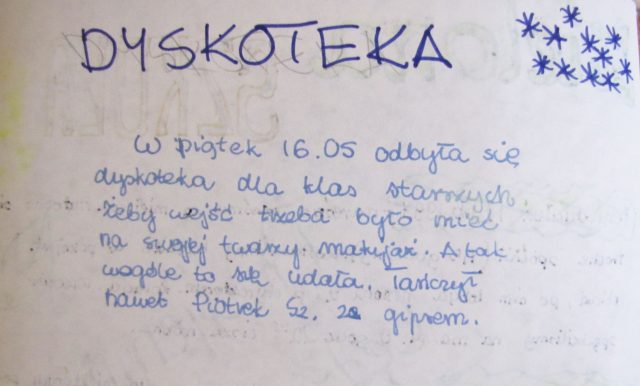 DYSKOTEKA
W piątek 16.05 odbyła się
dyskoteka dla klas starszych.
żeby wejść trzeba było mieć
na swojej twarzy makijaż. A tak
wogóle to się udała. Tańczył
nawet Piotrek Sz. z gipsem.